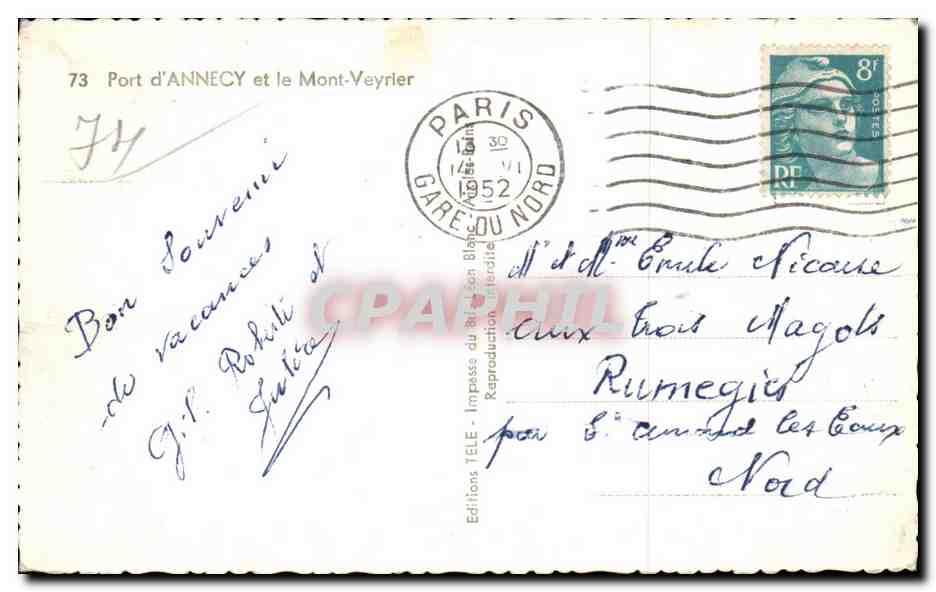 73 Port d'ANNECY et le Mont-Veyrier
74
Bon Souvenir
de vacances
J.P. Roberte et
PARIS
30
14 VI
1952
GARE DU NORD
8F
POSTES
RF
Editions TELE - Impasse du Bd Léon Blanc Aix-les-Bains
Reproduction interdite
CPARPHIL
Mr et Mme Emile Nicaise
aux trois Magots
Rumegies
par St amand les Eaux
Nord